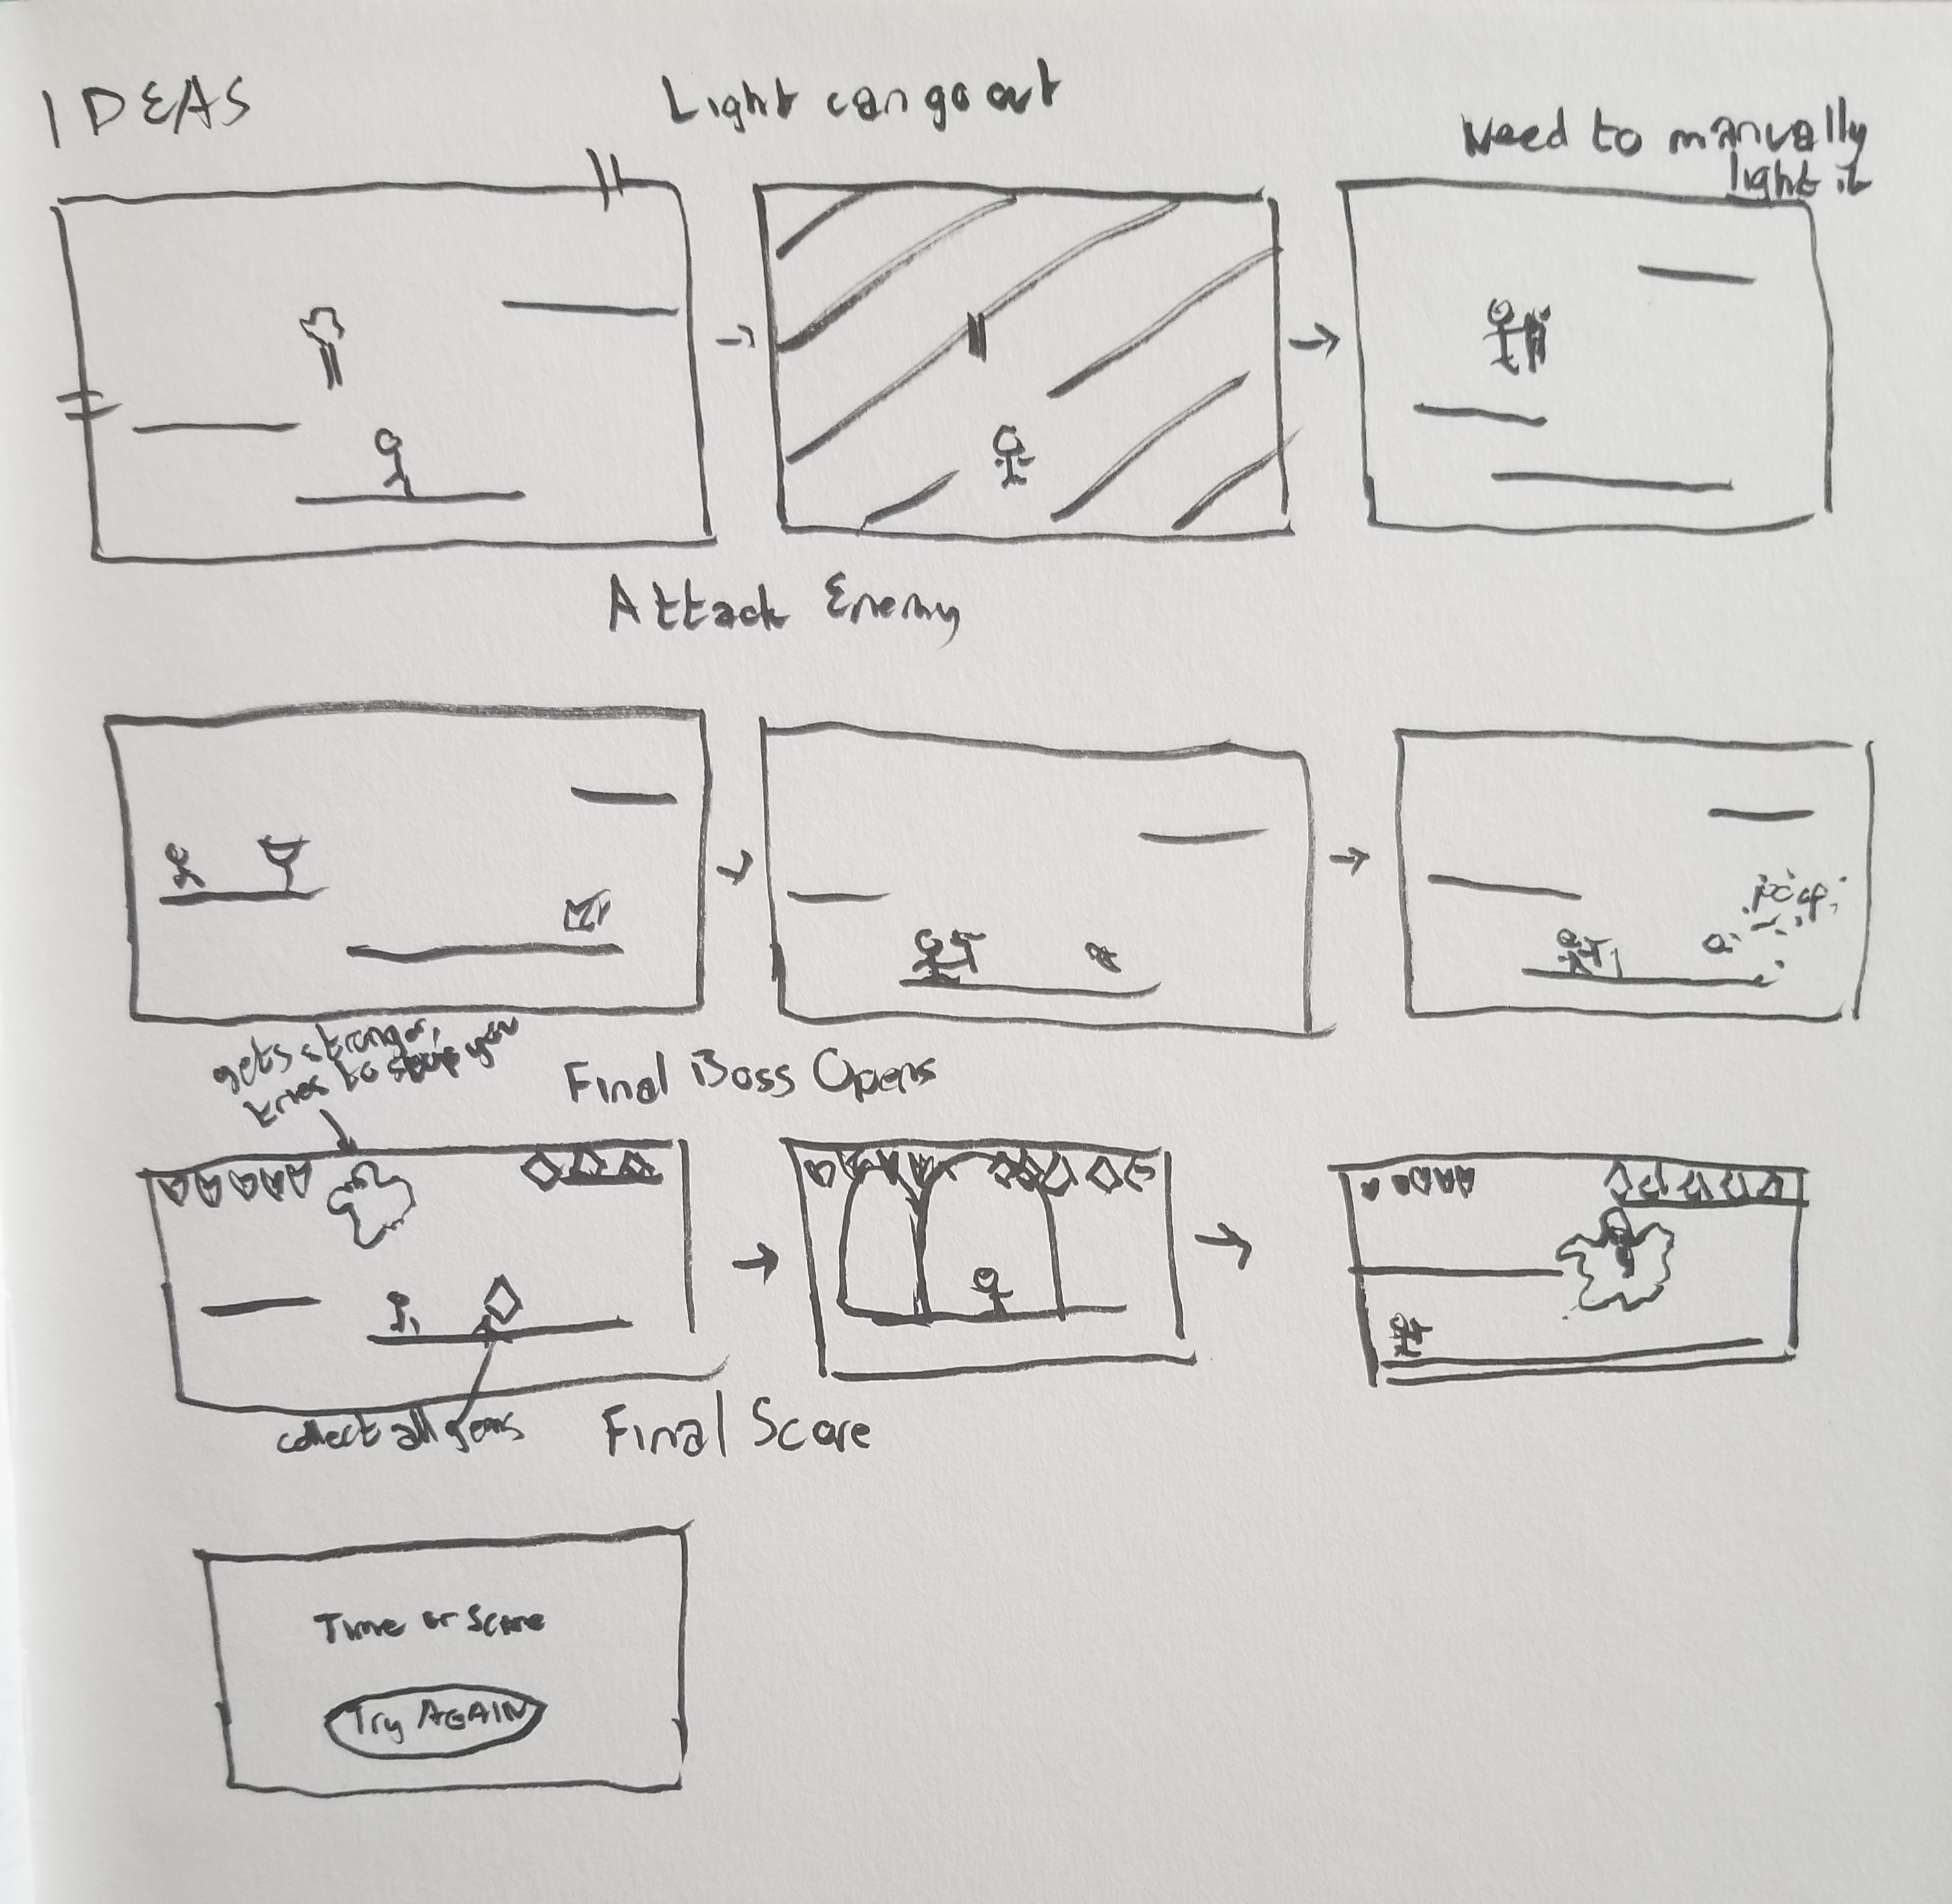 IDEAS
Light can go out
Need to manually
light it
Attack Enemy
gets stronger,
tries to stop you
Final Boss Opens
collect all gems
Final Score
Time or Score
Try AGAIN